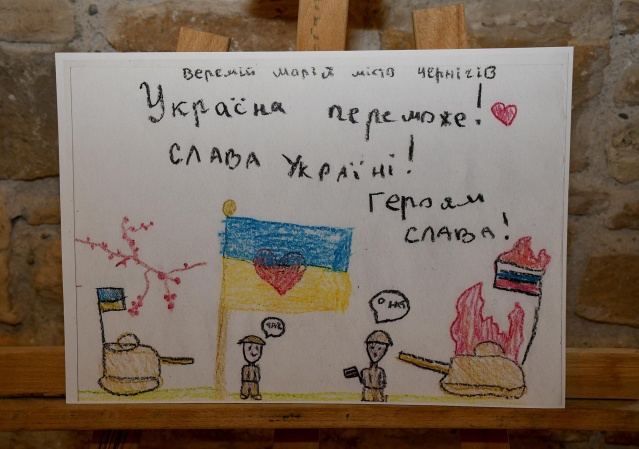 Веремій Марія місто Чернігів
Україна переможе!
СЛАВА Україні!
Героям
СЛАВА!